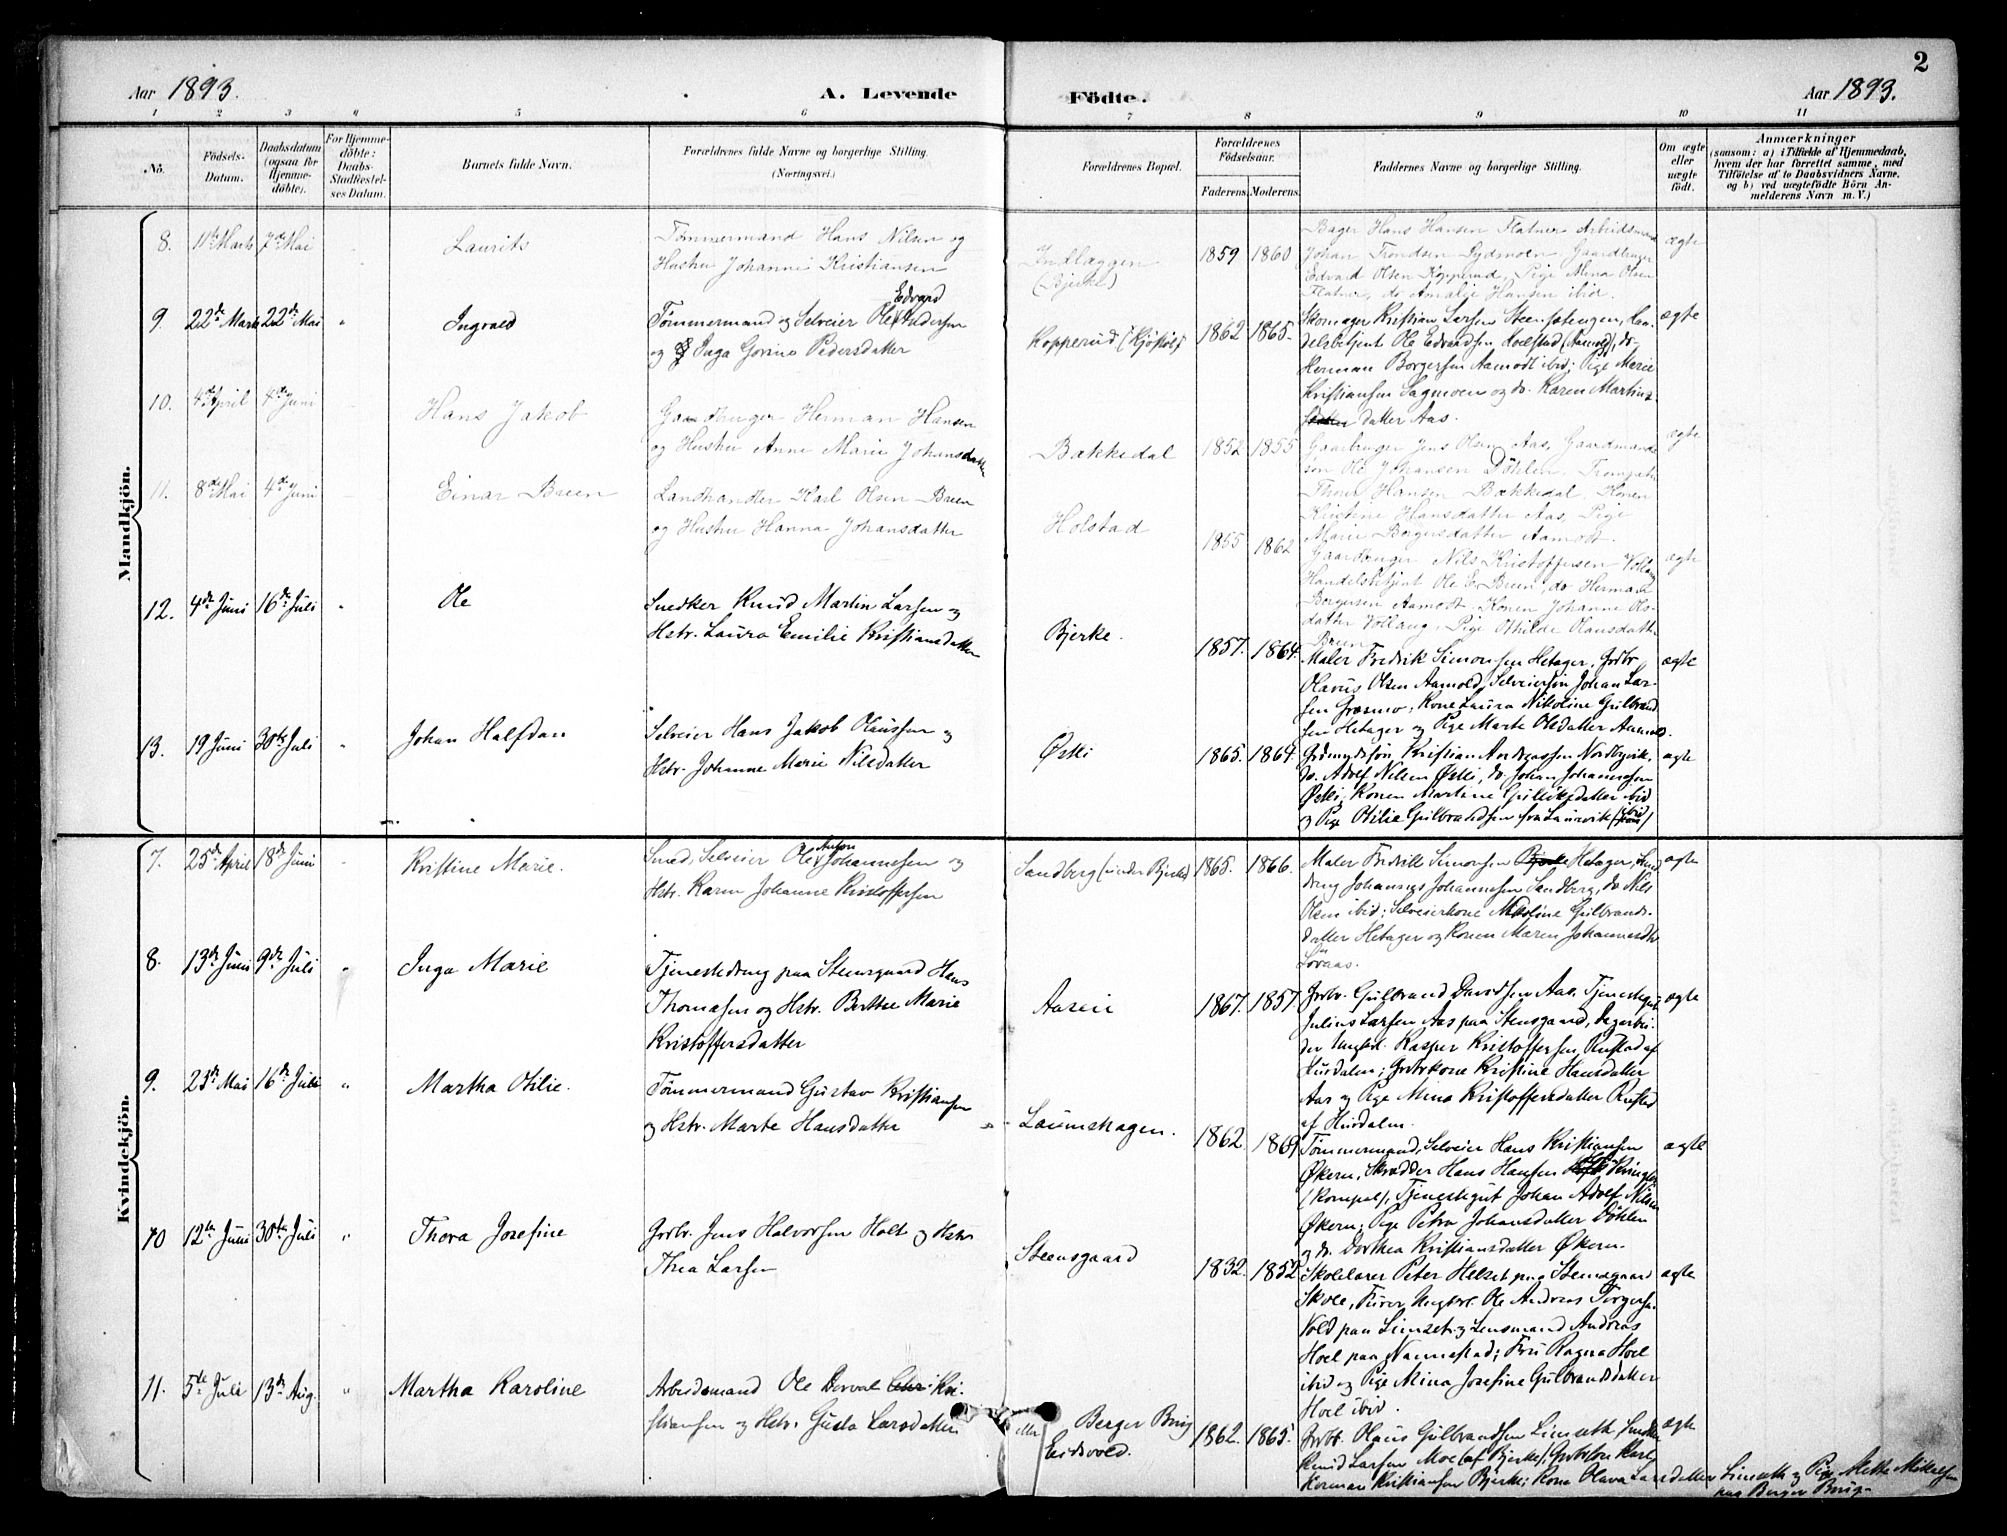 2
Aar 1893.
A. Levende
Födte.
Aar 1893.
1 2 3 4 5 6 7 8 9 10 11
No.
Födsels-
Datum.
Daabsdatum
(ogsaa for
Hjemme-
döbte).
For Hjemme-
döbte:
Daabs-
Stadfæstel-
ses Datum.
Barnets fulde Navn.
Forældrenes fulde Navne og borgerlige Stilling.
(Næringsvei.)
Forældrenes Bopæl.
Forældrenes
Födselsaar.
Faderens.
Moderens.
Faddernes Navne og borgerlige Stilling.
Om ægte
eller
uægte
födt.
Anmærkninger
(saasom: a) i Tilfælde af Hjemmedaab,
hvem der har forrettet samme, med
Tilföielse af to Daabsvidners Navne,
og b) ved uægtefödte Börn An-
melderens Navn m. V.)
Mandkjön.
8. 11te Marts 7de Mai
Laurits
Tømmermand Hans Nilsen og
Hustru Johanne Kristiansen
Indlæggen
(Bjerke)
1859 1860
Bager Hans Hansen Flatner Arbeidsmand
Johan Trondsen Dydmoen, Gaardbruger
Edvard Olsen Kopperud, Pige Mina Olsen
Flatner, do Amalie Hansen ibid.
ægte
9 22de Marts 22de Mai "
Ingvald
Edvard
Tømmermand og Selveier Ole Andersen
og Inga Gorine Pedersdatter
Kopperud
1862 1865.
Skomager Kristian Larsen Steensstengen, Han-
delsbetjent Ole Edvardsen Holstad (Aamodt), do
Herman Borgersen Aamodt ibid; Pige Marie
Kristiansen Sagmoen og do. Karen Martins-
datter Aas.
ægte
10. 4de April 4de Juni
Hans Jakob
Gaardbruger Herman Hansen
og Hustru Anne Marie Johansdatter
Bækkedal
1852 1855
Gaardbruger Jens Olsen Aas, Gaardmands-
søn Ole Johansen Döhlen,
Thorer Hansen Bækkedal. Konen
Kristine Hansdatter Aas, Pige
Marie Borgersdatter Aamodt.
ægte
11. 8de Mai 4de Juni
Einar Breen
Landhandler Karl Olsen Breen
og Hustru Hanna Johansdatter
Holstad
1855 1862
Gaardbruger Nils Kristoffersen Vollaug
Handelsbetjent Ole E. Breen, do Herman
Borgersen Aamodt. Konen Johanne Ols-
datter Vollaug, Pige Othilde Hansdatter
Breen
ægte
12. 4de Juni 16de Juli "
Ole
Snedker Knud Martin Larsen og
Hstr. Laura Emilie Kristiansdatter
Bjerke.
1857. 1864.
Maler Fredrik Simonsen Hetager, Grdbr
Olavus Olsen Aamold, Selveiersøn Johan Lar-
sen Grasmo; Kone Laura Nikoline Gulbrand
sen Hetager og Pige Marte Olsdatter Aamold.
ægte
13. 19 Juni 30te Juli "
Johan Halfdan
Selveier Hans Jakob Olaussen og
Hstr. Johanne Marie Nilsdatter
Øski
1865. 1864.
Grdmandssøn Kristian Andreassen Nordbyeik,
do. Adolf Nilsen Øski, do. Johan Johannessen
Øski, Konen Martine Gulliksdatter ibid
og Pige Otilie Gulbrandsen fra Laurvik (ibid)
ægte
Kvindekjön.
7. 25de April 18de Juni
Kristine Marie.
Anton
Smed, Selveier Ole Johannesen og
Hstr. Karen Johanne Kristoffersen
Sandberg (under Bjerke)
1865. 1866.
Maler Fredrik Simonsen Hetager, Smed
dreng Johannes Johannesen Sandberg, do Nils
Olsen ibid; Selveierkone Nikoline Gulbrands-
datter Hetager og Konen Maren Johannesdtr
ægte
8. 13de Juni 9de Juli "
Inga Marie
Tjenestedreng paa Steensgaard Hans
Thomasen og Hstr. Berthe Marie
Kristoffersdatter
Aaseie
1867. 1857
Grdbr. Gulbrand Davidsen Aas, Tjenestegut
Julius Larsen Aas paa Stensgaard, Dagarbei-
der Ungkl. Kasper Kristoffersen Rustad af
Hurdalen; Grdbrkone Kristine Hansdatter
Aas og Pige Mina Kristoffersdatter Rustad
af Hurdalen.
ægte
9. 23de Mai 16de Juli "
Martha Otilie.
Tømmermand Gustav Kristiansen
og Hstr. Marte Hansdatter
Launshagen.
1862. 1869
Tømmermand, Selveier Hans Kristiansen
Økern, Skrædder Hans Hansen Ringlen
(Kompel), Tjenestegut Johan Adolf Nilsen
Økern; Pige Petra Johansdatter Döhlen
og do. Dorthea Kristiansdatter Økern.
ægte
10 12te Juni 30te Juli "
Thora Josefine
Grdbr. Jens Halvorsen Holt og Hstr.
Thea Larsen
Steensgaard
1832. 1852
Skolelærer Peter Helset paa Stensgaard
Skole, Furer Ungkrl. Ole Andreas Torgersen
Vold paa Limset og Lensmand Andreas
Hoel paa Nannestad; Fru Ragna Hoel
ibid og Pige Mina Josefine Gulbrandsdatter
Hoel ibid.
ægte
11. 5te Juli 13de Aug. "
Martha Karoline
Arbeidsmand Ole Dorval Kri-
stiansen og Hstr. Gusta Larsdatter
Berger Brug
Eidsvold.
1862. 1865.
Grdbr. Olaus Gulbrandsen Limseth, Snedker
Knud Larsen Moe (af Bjerke), Karl
Herman Kristiansen Bjerke; Kone Olava Larsdatter Limseth og Pige Mette Mikkelsen
paa Berger Brug.
ægte